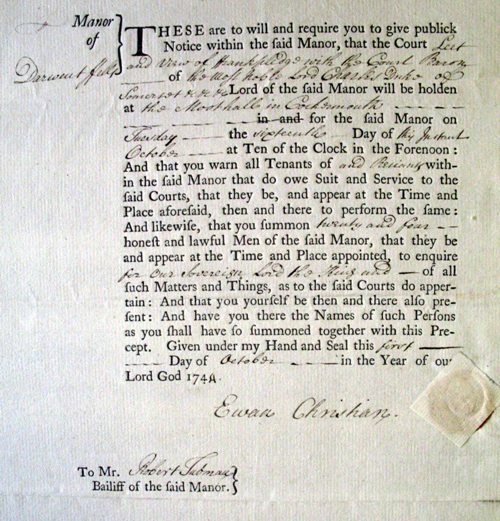 Manor
of
Darwent fells
THESE are to will and require you to give publick
Notice within the said Manor, that the Court Leet
and View of Frankpledge with the Court Baron
of the most noble Lord Charles Duke of
Somerset &c &c &c Lord of the said Manor will be holden
at the Moothall in Cockermouth
in and for the said Manor on
Tuesday the sixteenth Day of this Instant
October at Ten of the Clock in the Forenoon:
And that you warn all Tenants of and Resiants with-
in the said Manor that do owe Suit and Service to the
said Courts, that they be, and appear at the Time and
Place aforesaid, then and there to perform the same:
And likewise, that you summon twenty and four
honest and lawful Men of the said Manor, that they be
and appear at the Time and Place appointed, to enquire
for our Sovereign Lord the King and of all
such Matters and Things, as to the said Courts do apper-
tain: And that you yourself be then and there also pre-
sent: And have you there the Names of such Persons
as you shall have so summoned together with this Pre-
cept. Given under my Hand and Seal this first
Day of October in the Year of our
Lord God
Ewan Christian.
To Mr. Robert Tubman
Bailiff of the said Manor.